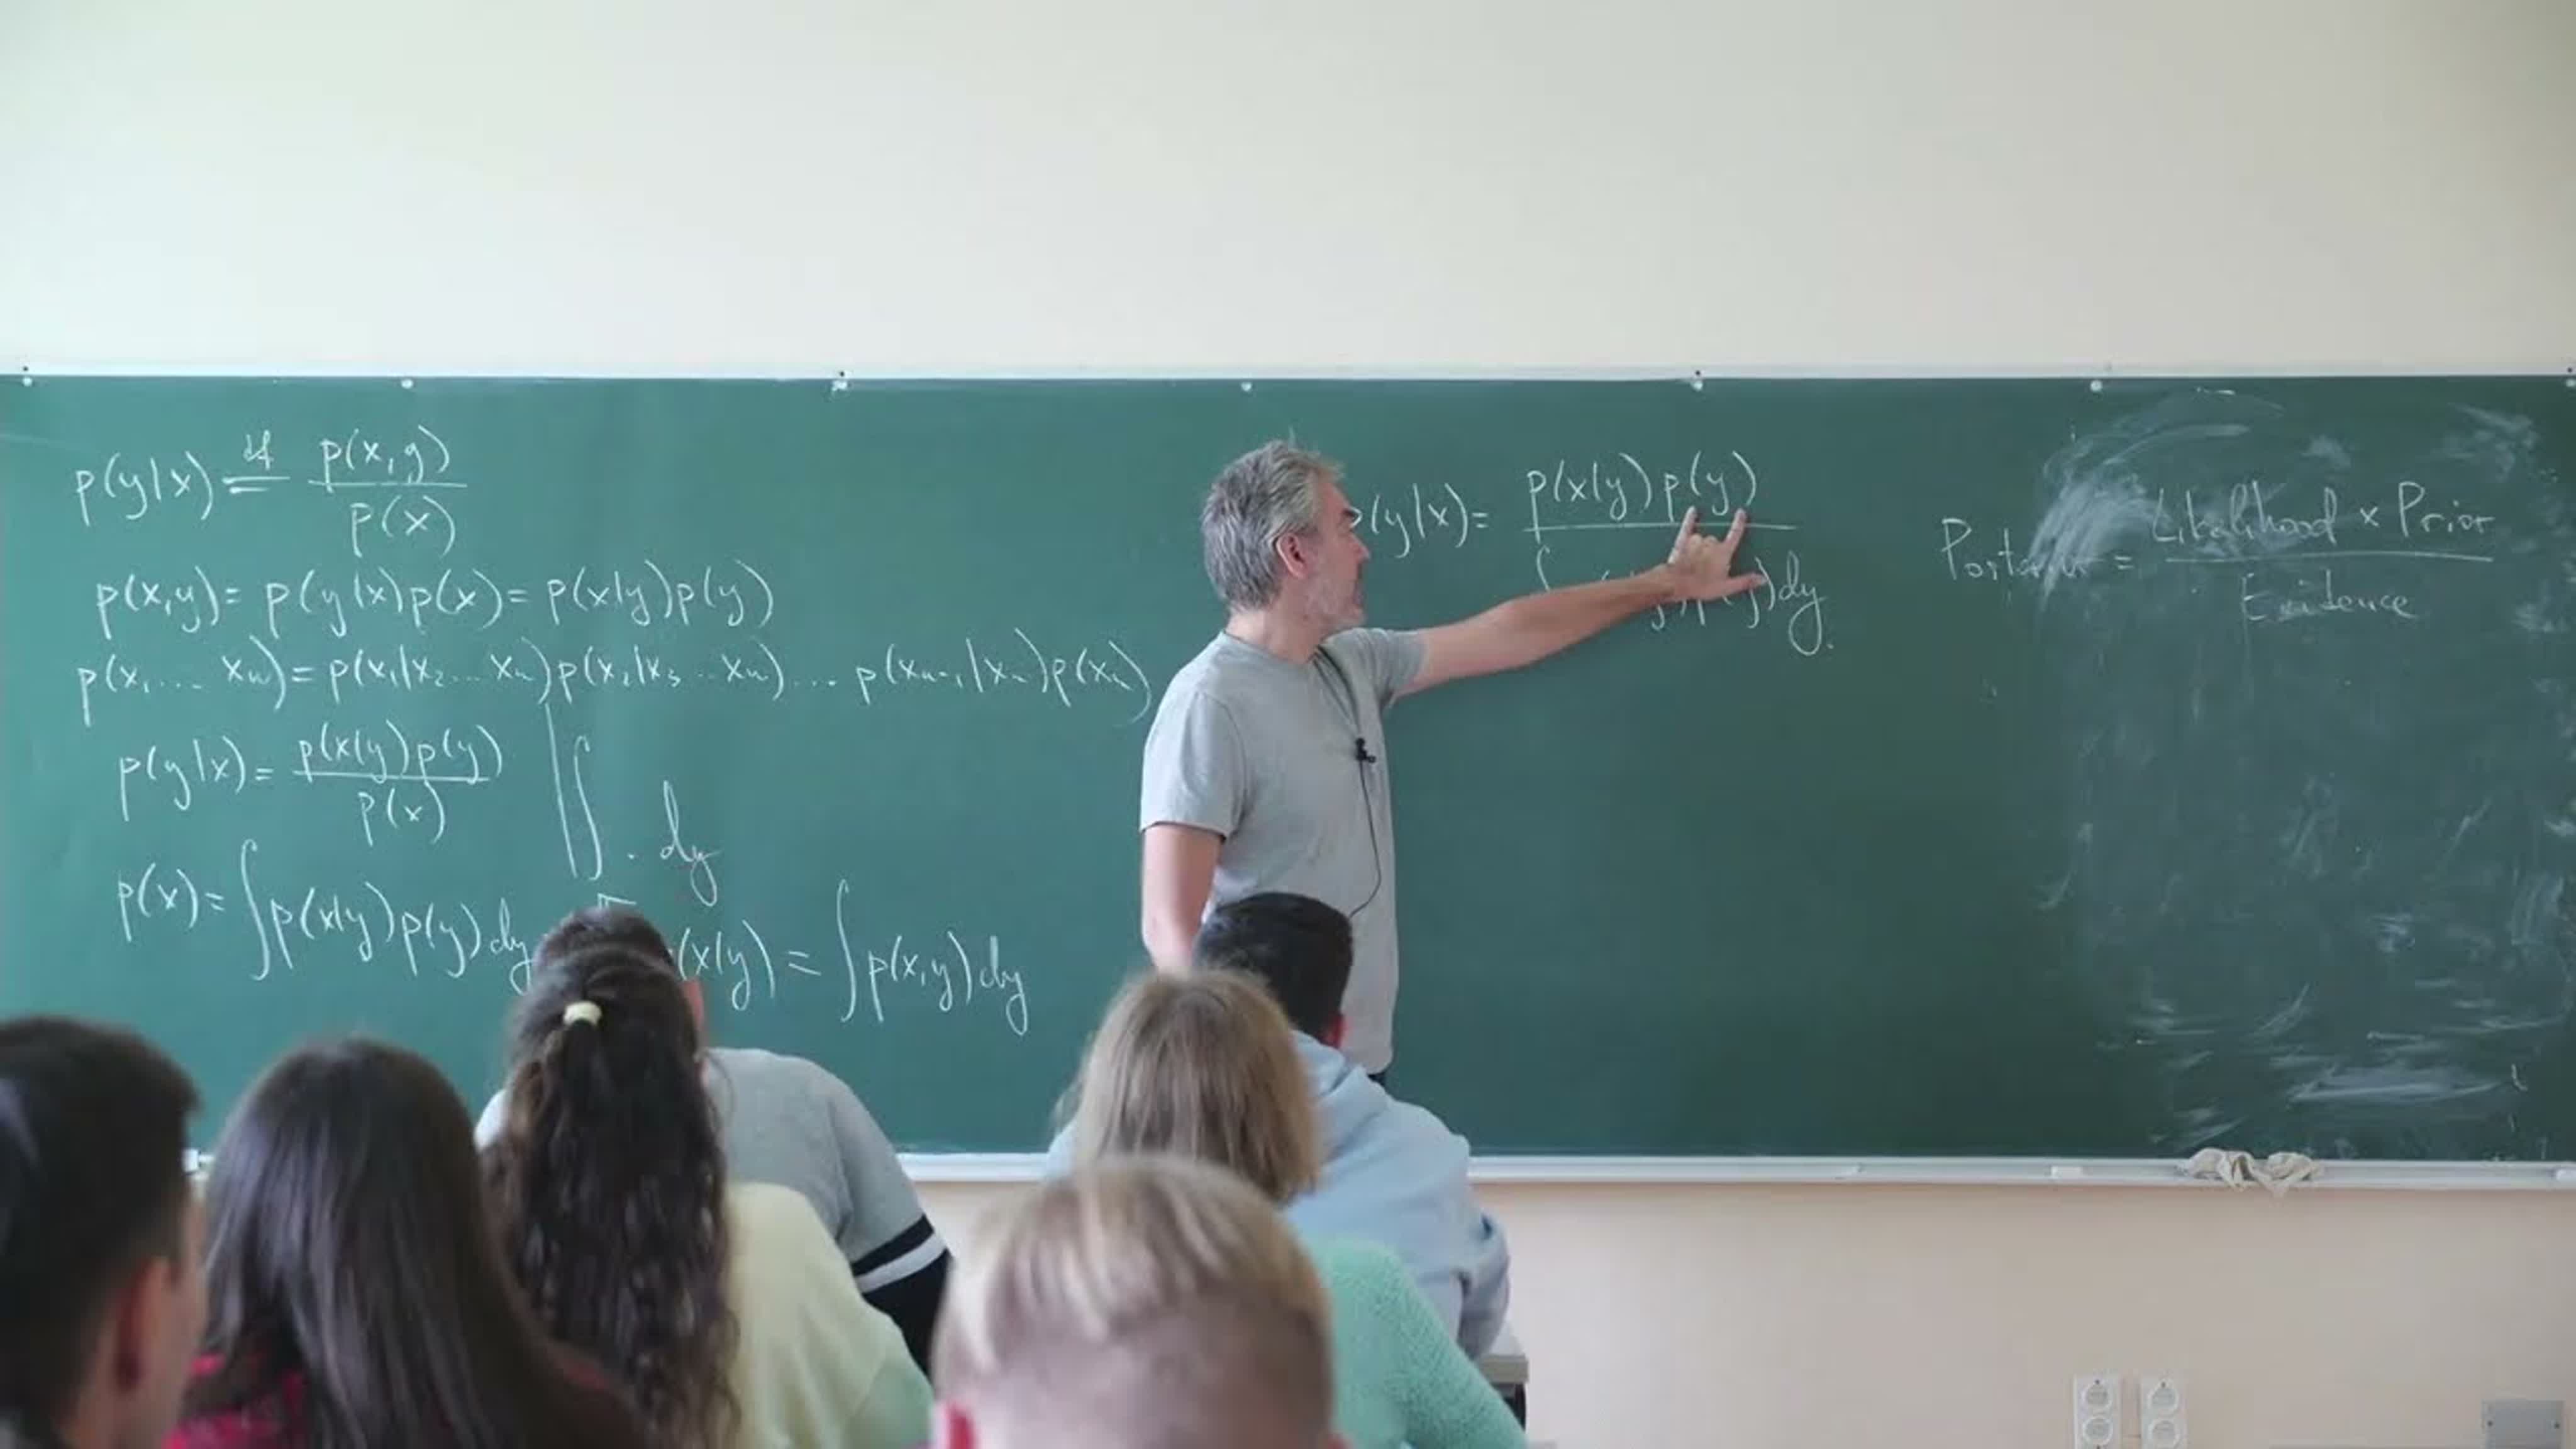 p(y|x) df= p(x,y) / p(x)
p(x,y)= p(y|x)p(x)= p(x|y)p(y)
p(x₁... xₙ)= p(x₁|x₂... xₙ)p(x₂|x₃...xₙ)... p(xₙ₋₁|xₙ)p(xₙ)
p(y|x)= p(x|y)p(y) / p(x)
∫ · dy
p(x)= ∫p(x|y)p(y)dy
(x|y) = ∫p(x,y)dy
p(y|x)= p(x|y)p(y) / ∫ dy.
= Likelihood × Prior / Evidence